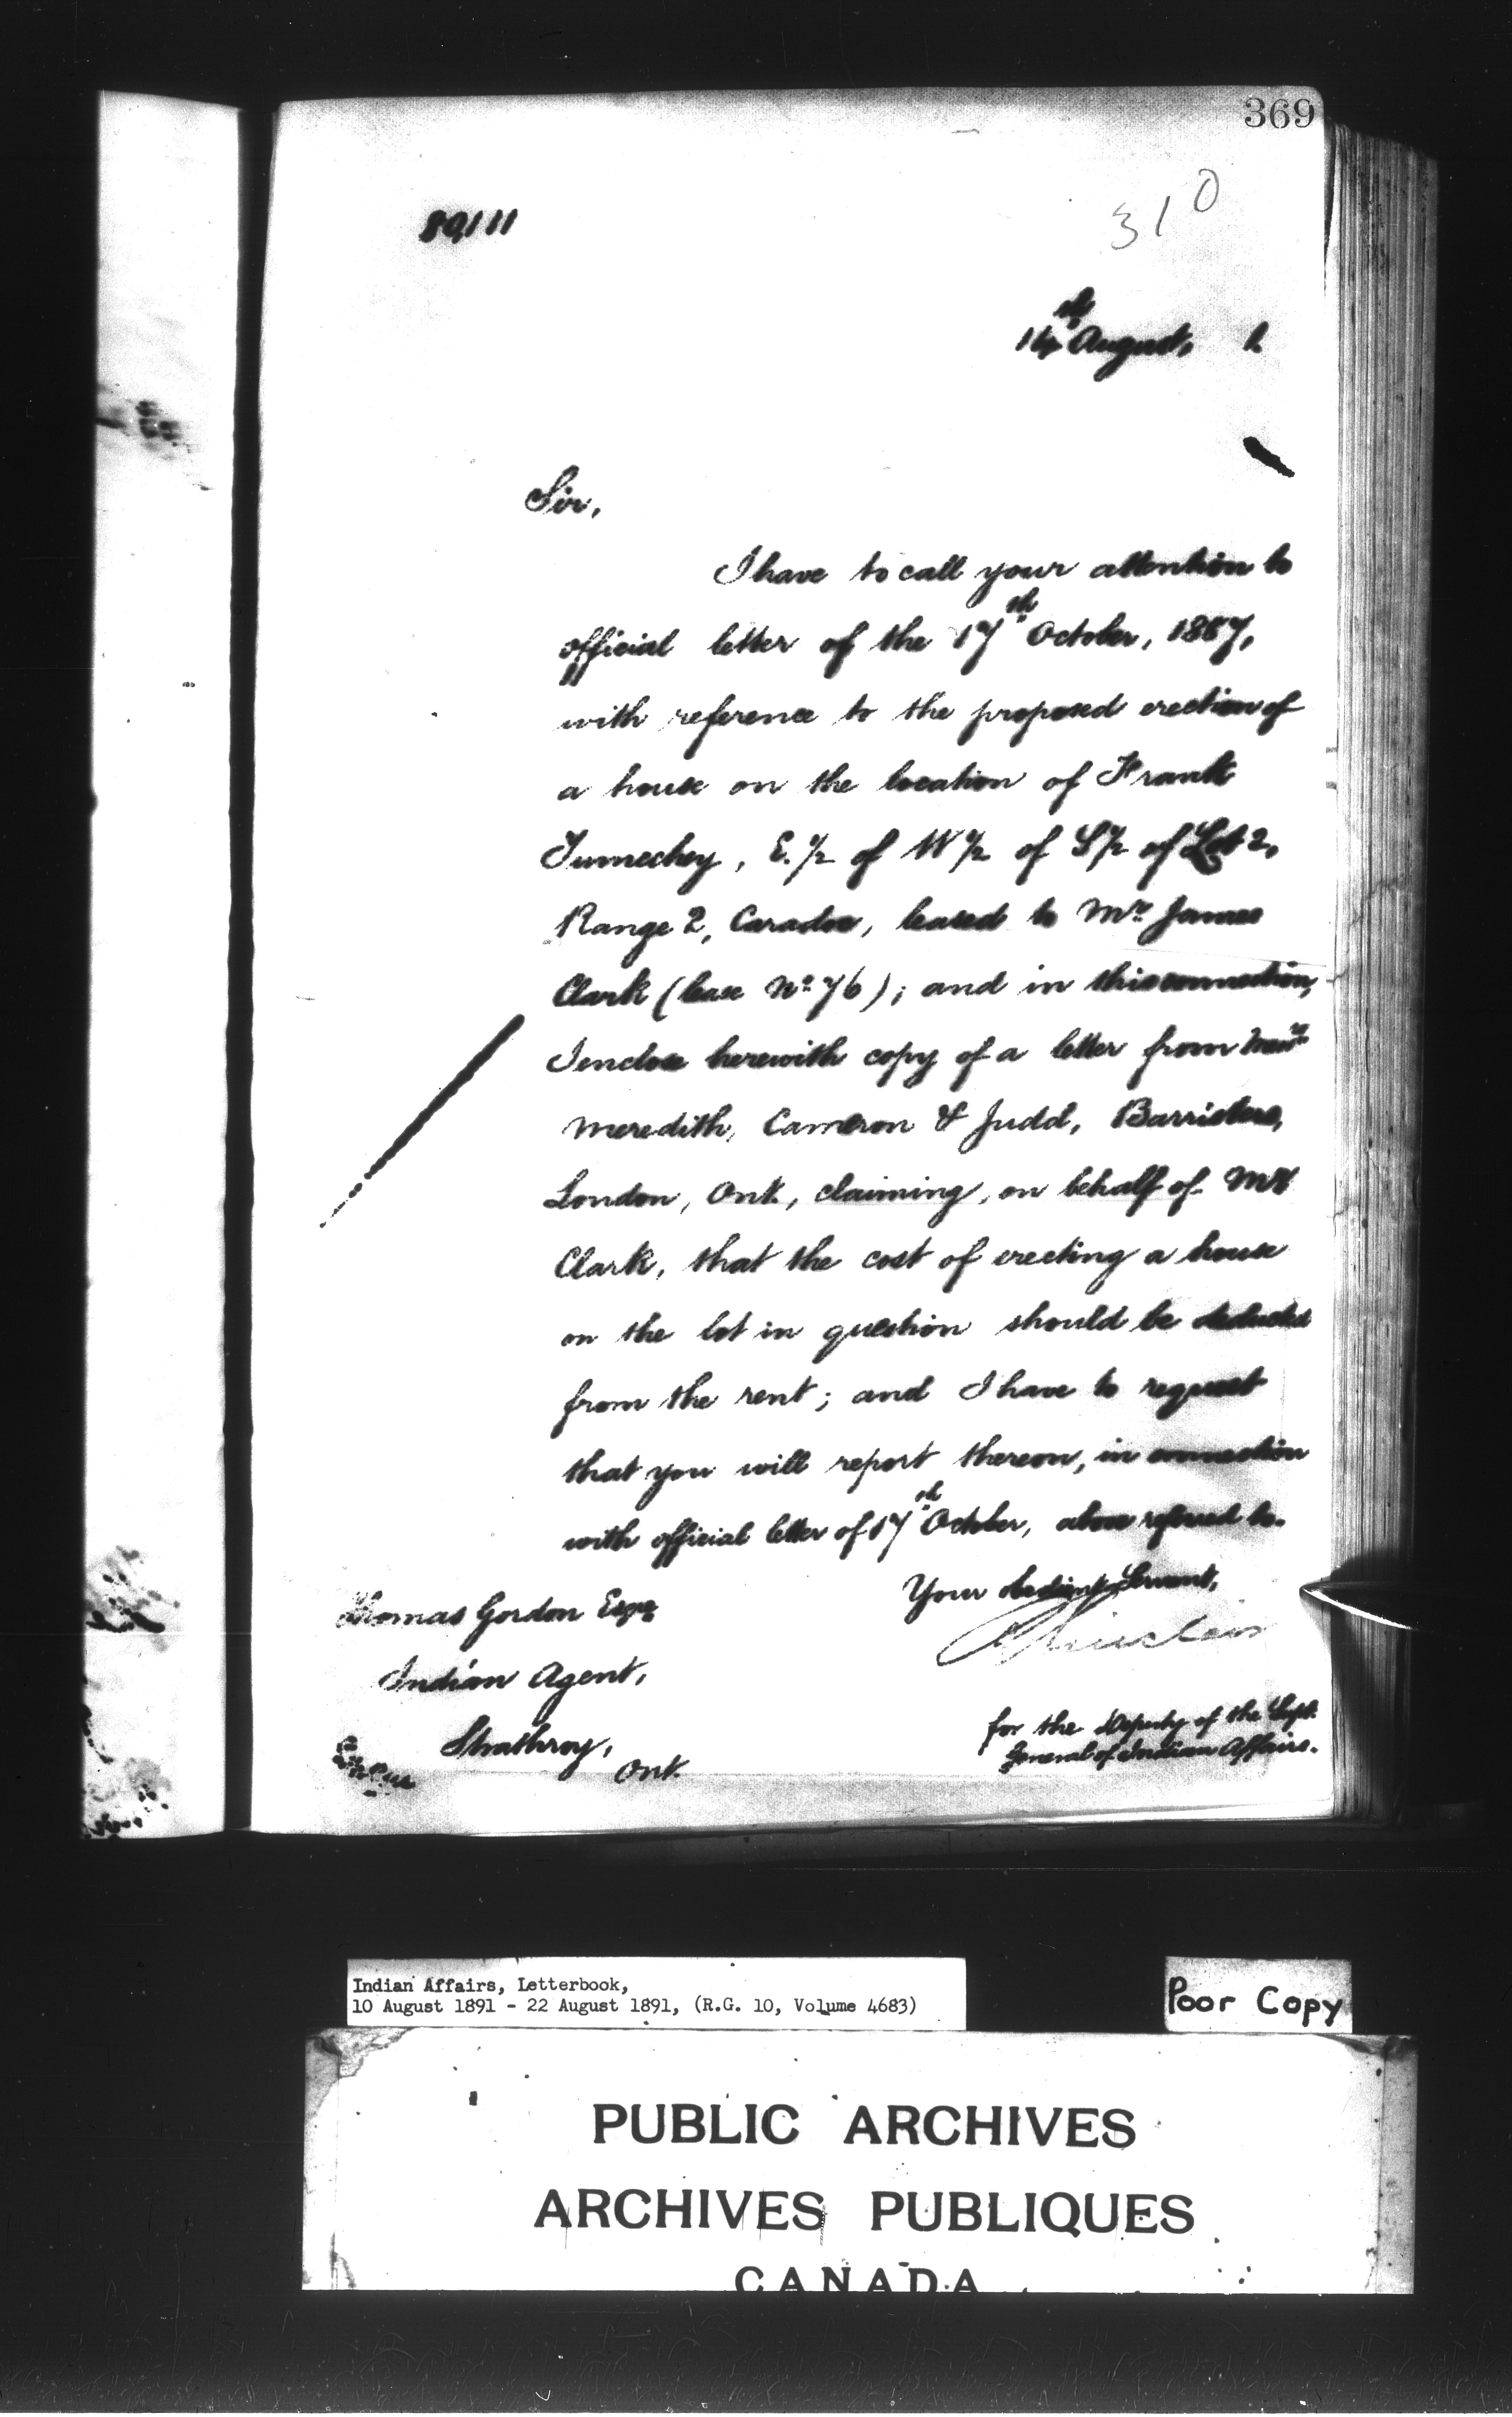 369
310
80,111
14th August, 1
Sir,
I have to call your attention to
official letter of the 17th October, 1887,
with reference to the proposed erection of
a house on the location of Frank
E. 1/2 of W 1/2 of S 1/2 of Lot 2,
Range 2, Caradoc, leased to Mr. James
Clark (lease No. 76); and in this connection,
I enclose herewith copy of a letter from Messrs
Meredith, Cameron & Judd, Barristers,
London, Ont., claiming, on behalf of Mr
Clark, that the cost of erecting a house
on the lot in question should be deducted
from the rent; and I have to request
that you will report thereon, in connection
with official letter of 17th October, above referred to.
Your obedient Servant,
Thomas Gordon Esqre
Indian Agent,
Strathroy,
Ont.
for the Deputy of the Supt.
General of Indian Affairs.
Indian Affairs, Letterbook,
10 August 1891 - 22 August 1891, (R.G. 10, Volume 4683)
Poor Copy
PUBLIC ARCHIVES
ARCHIVES PUBLIQUES
CANADA